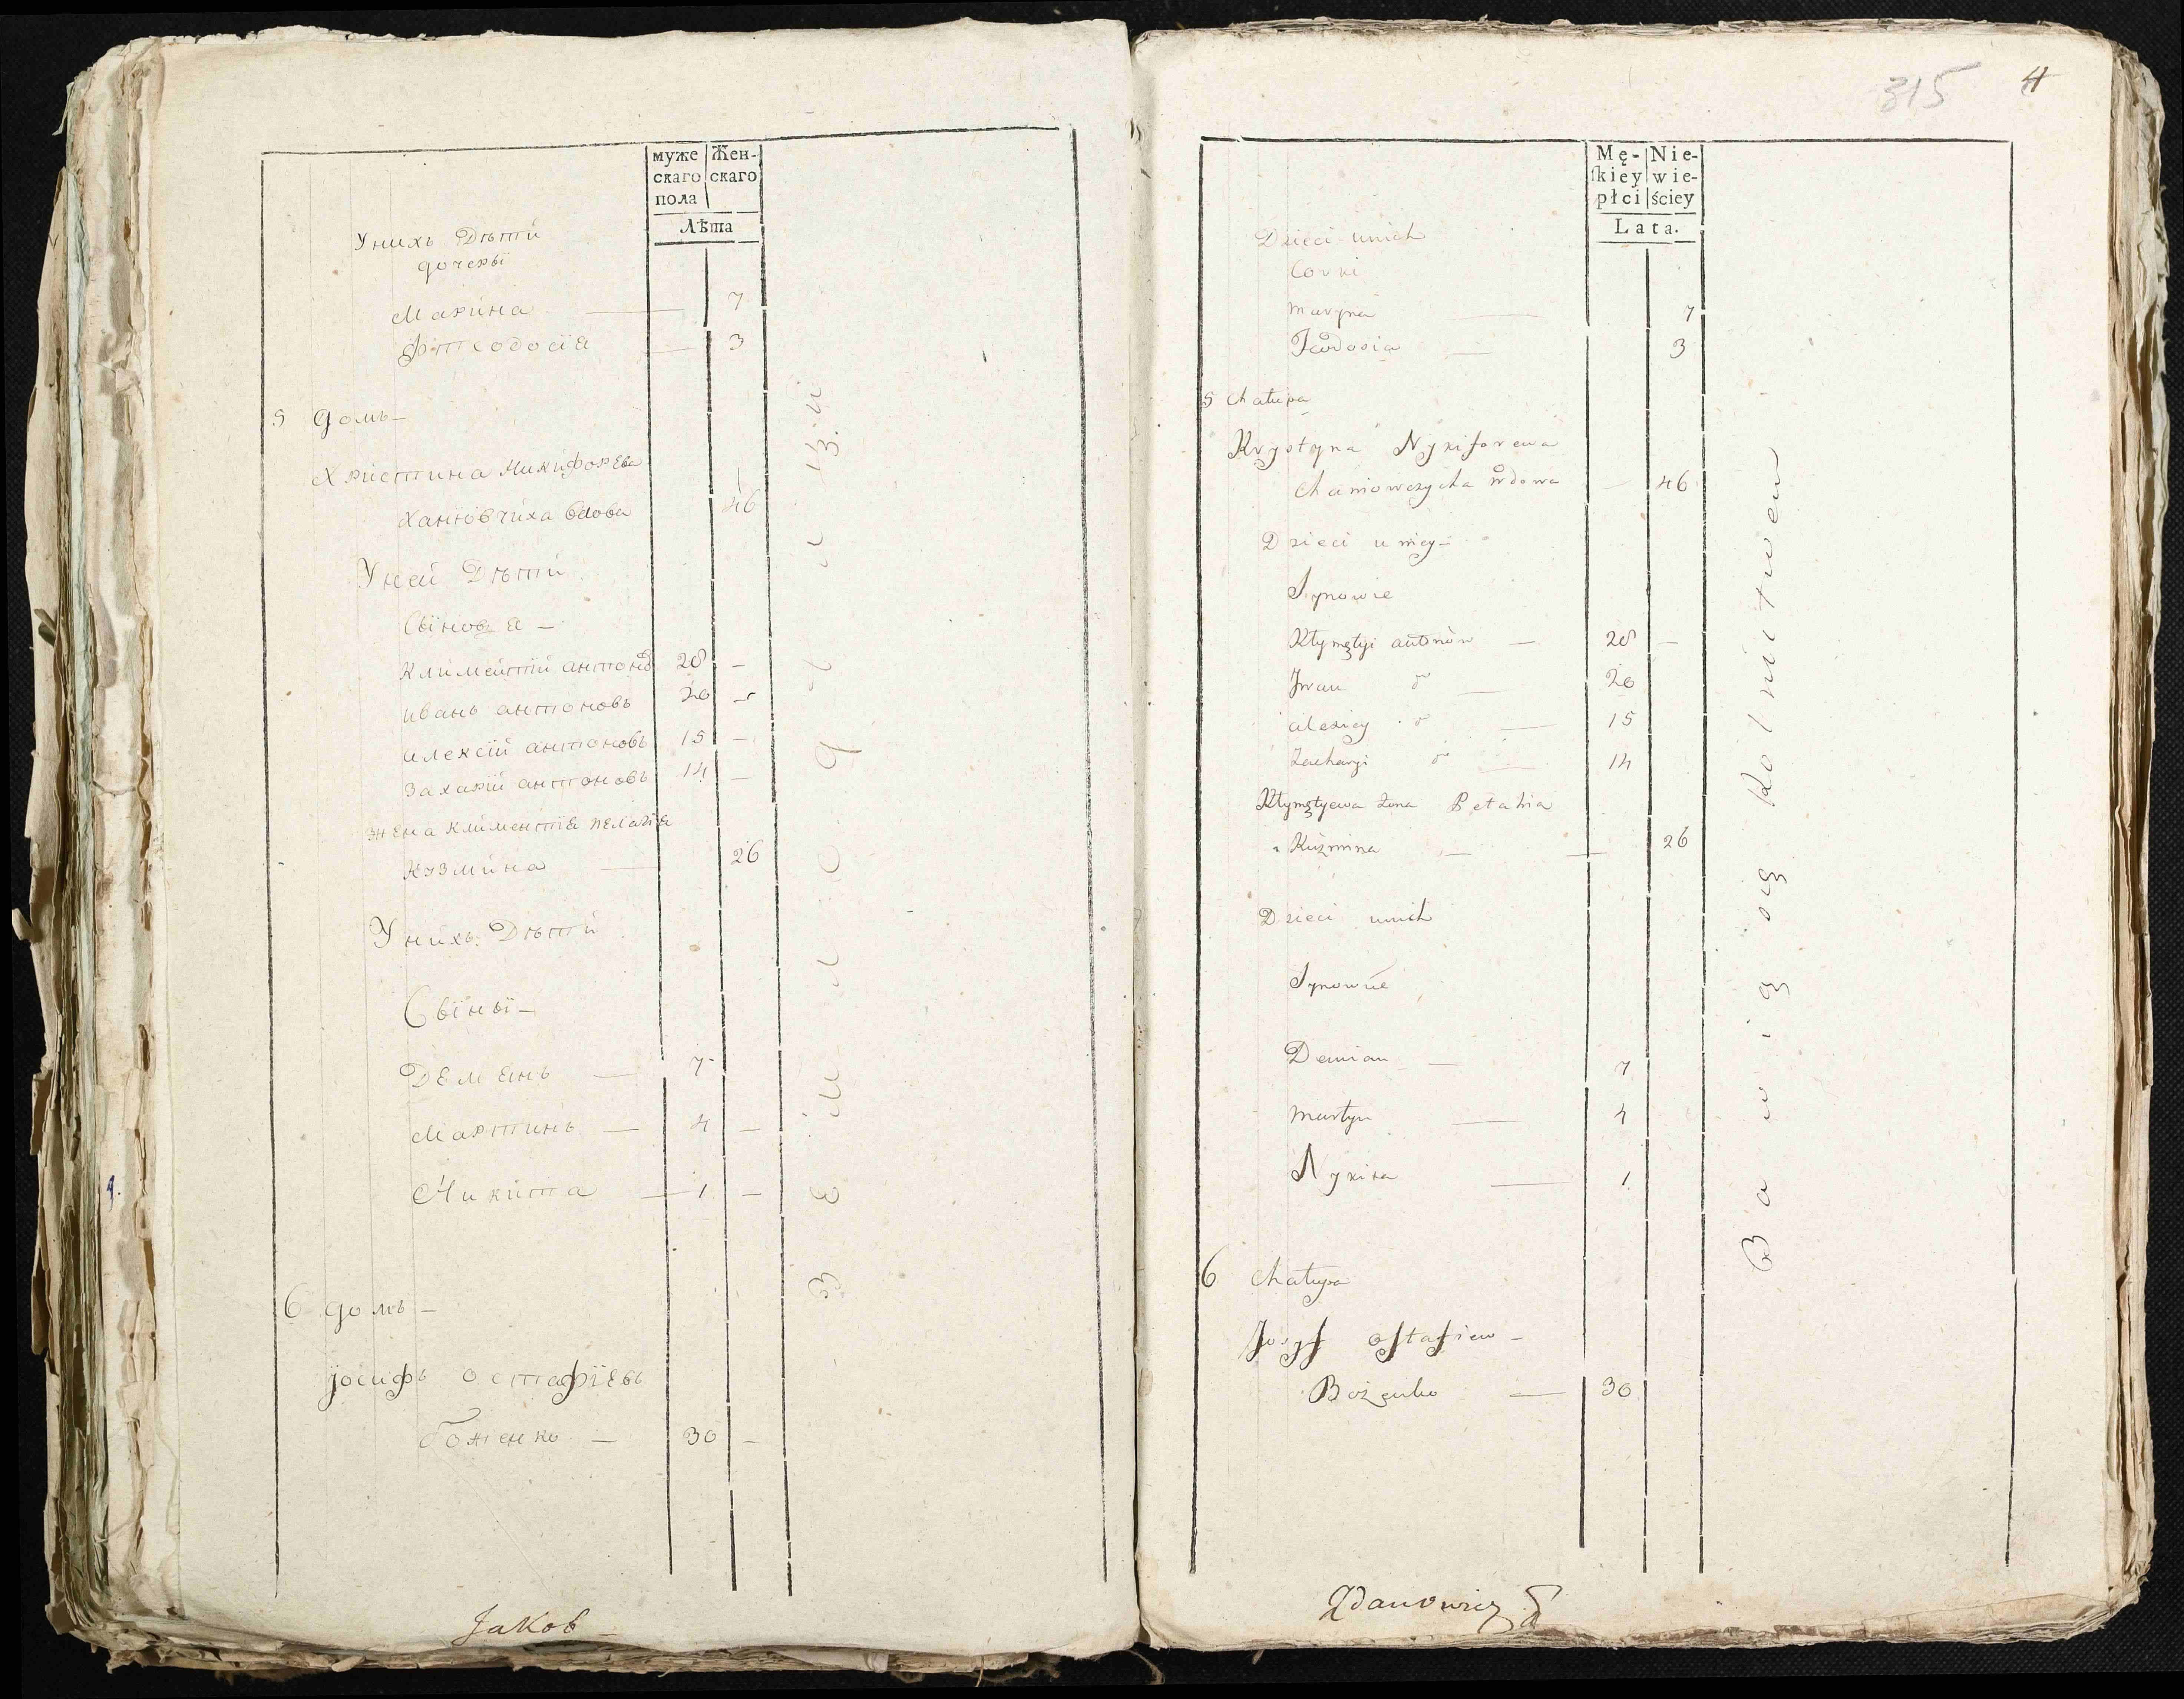 муже скаго пола
Жен- скаго
Лѣта
Унихъ Дѣти
дочерьї
Марина — 7
Фтеодосїа — 3
5 домъ —
Христина Никифорева
Хановчиха вдова 46
Уней Дѣти
Сьїновья —
Климентий антоновъ 28 —
иванъ антоновъ 20 —
алексїй антоновъ 15 —
Захарїй антоновъ 14 —
жена климентїа пелагїа
кузмина — 26
Унихъ Дѣти
Сьїньї —
Деменъ — 7
Мартинъ — 4 —
Никита — 1 —
6 домъ —
Јосифъ остафїевъ
Боженко — 30 —
Jakob —
315
4
Mę- ſkiey płci
Nie- wie- ściey
Lata.
Dzieci unich
Corki
Maryna — 7
Teodosia — 3
5 Chałupa
Krystyna Nykiforewa
Chanowczycha wdowa — 46
Dzieci u niey —
Synowie
Kłymętyi antonów — 28 —
Jwan d — 20
alexiey d — 15
Zacharyi d — 14
Kłymętyewa żona Pełahia
Kuźmina — — 26
Dzieci unich
Synowie
Demian — 7
Martyn — 4
Nykita — 1
6 Chałupa
Jozyf oſtafiew —
Bożęnko — 30
Bawią się Rolnictwem
Zdanowicz